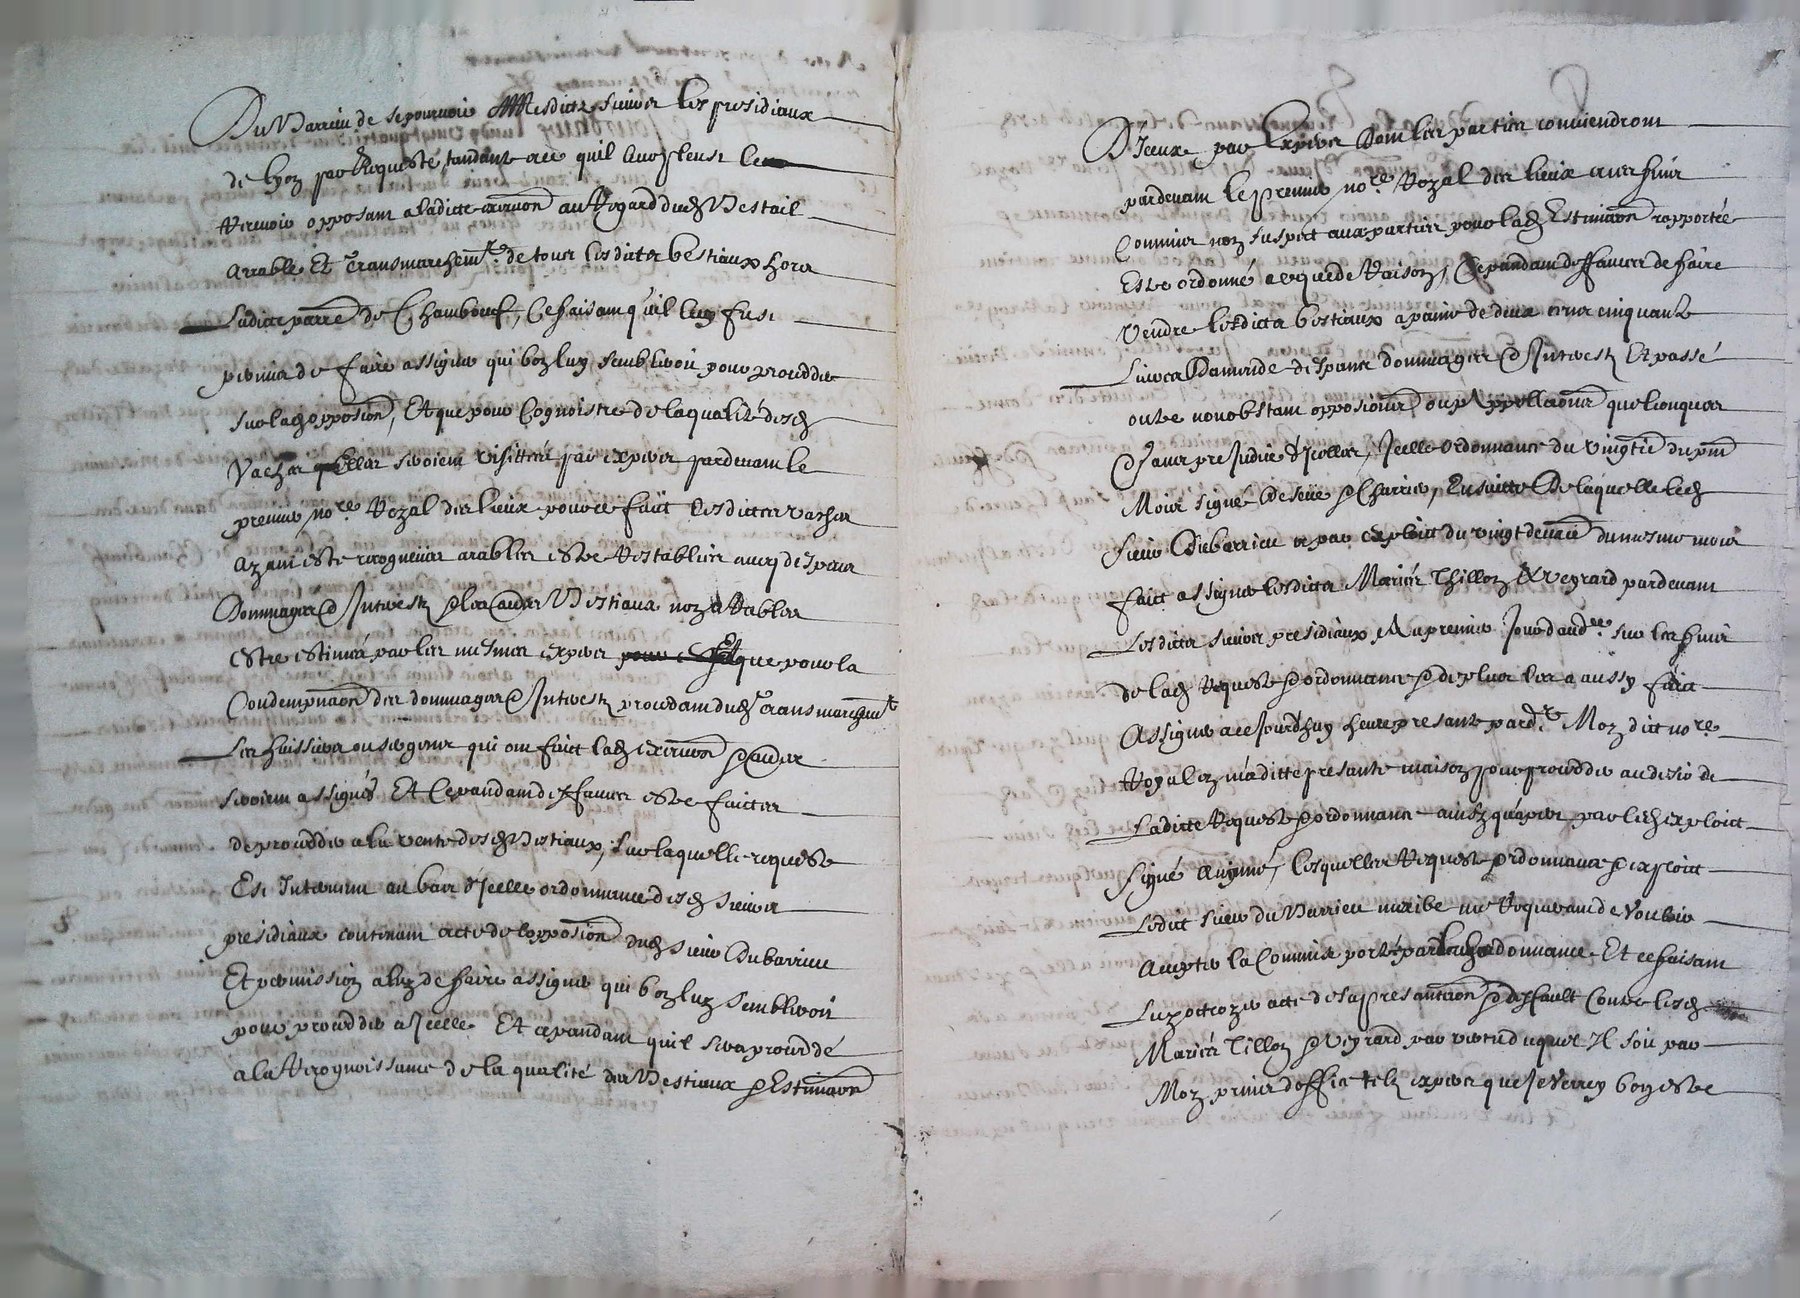 Du Barrieu de se pourvoir Mesdicts sieurs les presidiaux
de Lyon par Requeste tandante a ce quil leur pleust le
recevoir opposant a ladicte execuon au Regard dud Bestail
arrable Et Transmarchemt de tous lesdicts bestiaux hors
Ladicte parre de Chambœuf, Ce faisant qu'il luy fust
permis de faire assigner qui bon luy sembleroit pour procedder
sur lad opposion, Et que pour Cognoistre de la qualité desd
Vaches elles seroient visittées par expers pardevant le
premier nore Royal des lieux pour ce faict lesdictes vaches
ayant esté recogneues arables estre restablies avec despens
Dommages & Interests & les autres Bestiaux non arrables
estre estimés par les mesmes expers Et que pour la
Condempnaon des dommages & Interests procedant dud Transmarchemt
Les huissiers ou sergents qui ont faict lad execuon & autres
seroient assignés Et Cepandant deffances estre faictes
de proceder a la vente desd Bestiaux, sur laquelle requeste
Est Intervenu au bas d'Icelle ordonnance desd sieurs
presidiaux contenant acte de l'opposion dud sieur Dubarrieu
Et permission a luy de faire assigner qui bon luy sembleroit
pour proceddé a Icelle Et cepandant quil sera proceddé
a la Recognoissance de la qualité des Bestiaux & Estimaon
D'Iceux par Expers dont les parties conviendront
pardevant le premier nore Royal des lieux avec huis
Commis non suspect aux parties pour lad Estimaon rapportée
Estre ordonné ce que de Raison, Cepandant deffances de faire
Vendre lesdicts bestiaux a paine de deux cents cinquante
Livres Damande despans dommages & Interests Et passé
outre nonobstant opposions ou Appellaons quelconques
& sans preJudice d'Icelles, Icelle ordonnance du vingtie du pnt
Mois signé De seve & Charrier, Ensuitte De laquelle led
sieur Dubarrieu a par exploict du vingt deuxie du mesme mois
faict assigner lesdicts Maries Thillon & Veyrard pardevant
Lesdicts sieurs presidiaux Au premier Jour daudce sur les fins
de lad Requeste & ordonnance & de plus les a aussy faict
Assigner a ce Jourdhuy heure presante pardt Moy dict nore
Royal en ma ditte presante maison pour proceddé au desir de
Laditte Requeste & ordonnance ainsy qu'apert par led exploict
signé, lesquelles Requeste ordonnance & exploict
Ledict sieur du Barrieu exibe me Requerant de Vouloir
Accepter la Commise porté par ladite ordonnance Et ce faisant
Luy octroyer acte de sa presantaon & deffault Contre lesd
Maries Tillon & Veyrard par vertu duquel Il soit par
Moy prins d'office telz expers que Je Verray bon estre